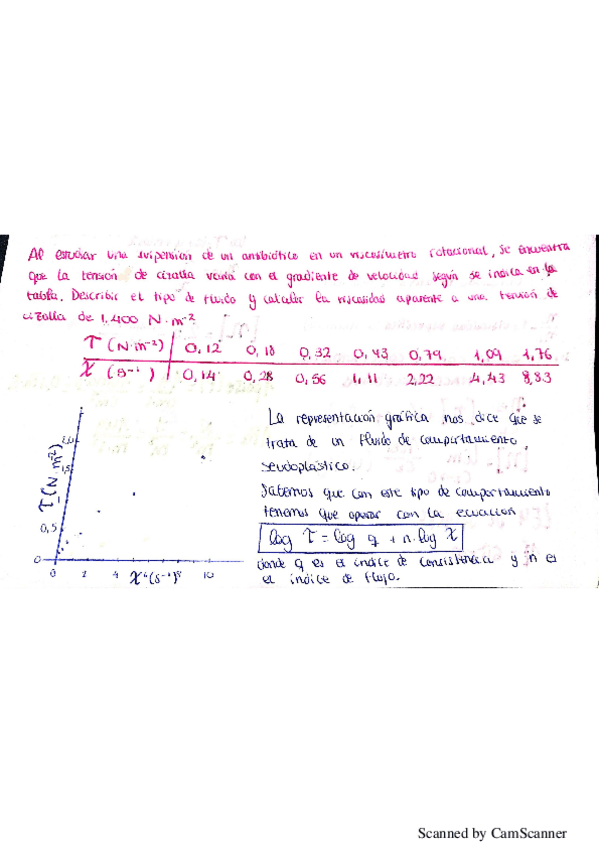 Al estudiar una suspensión de un antibiótico en un viscosímetro rotacional, se encuentra
que la tensión de cizalla varía con el gradiente de velocidad según se indica en la
tabla. Describir el tipo de fluido y calcular la viscosidad aparente a una tensión de
cizalla de 1,400 N·m⁻²
τ (N·m⁻²) 0,12 0,18 0,32 0,43 0,79 1,09 1,76
γ (s⁻¹) 0,14 0,28 0,56 1,11 2,22 4,43 8,83
La representación gráfica nos dice que se
trata de un fluido de comportamiento
seudoplástico.
Sabemos que con este tipo de comportamiento
tenemos que operar con la ecuación
log τ = log q + n·log γ
donde q es el índice de consistencia y n es
el índice de flujo.
τ (N·m⁻²)
0,5
0
0 2 4 (s⁻¹) 8 10
Scanned by CamScanner